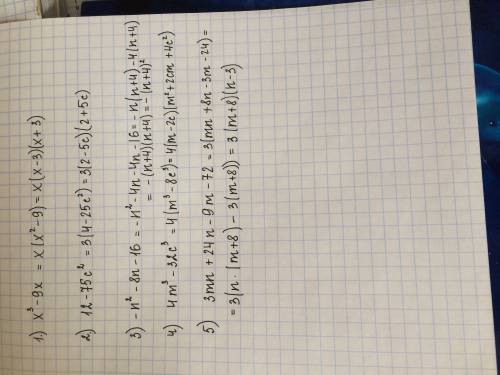 1) x³-9x = x(x²-9) = x(x-3)(x+3)
2) 12-75c² = 3(4-25c²) = 3(2-5c)(2+5c)
3) -n²-8n-16 = -n²-4n-4n-16 = -n(n+4)-4(n+4)
= -(n+4)(n+4) = -(n+4)²
4) 4m³-32c³ = 4(m³-8c³) = 4(m-2c)(m²+2cm+4c²)
5) 3mn+24n-9m-72 = 3(mn+8n-3m-24) =
= 3(n·(m+8)-3(m+8)) = 3(m+8)(n-3)